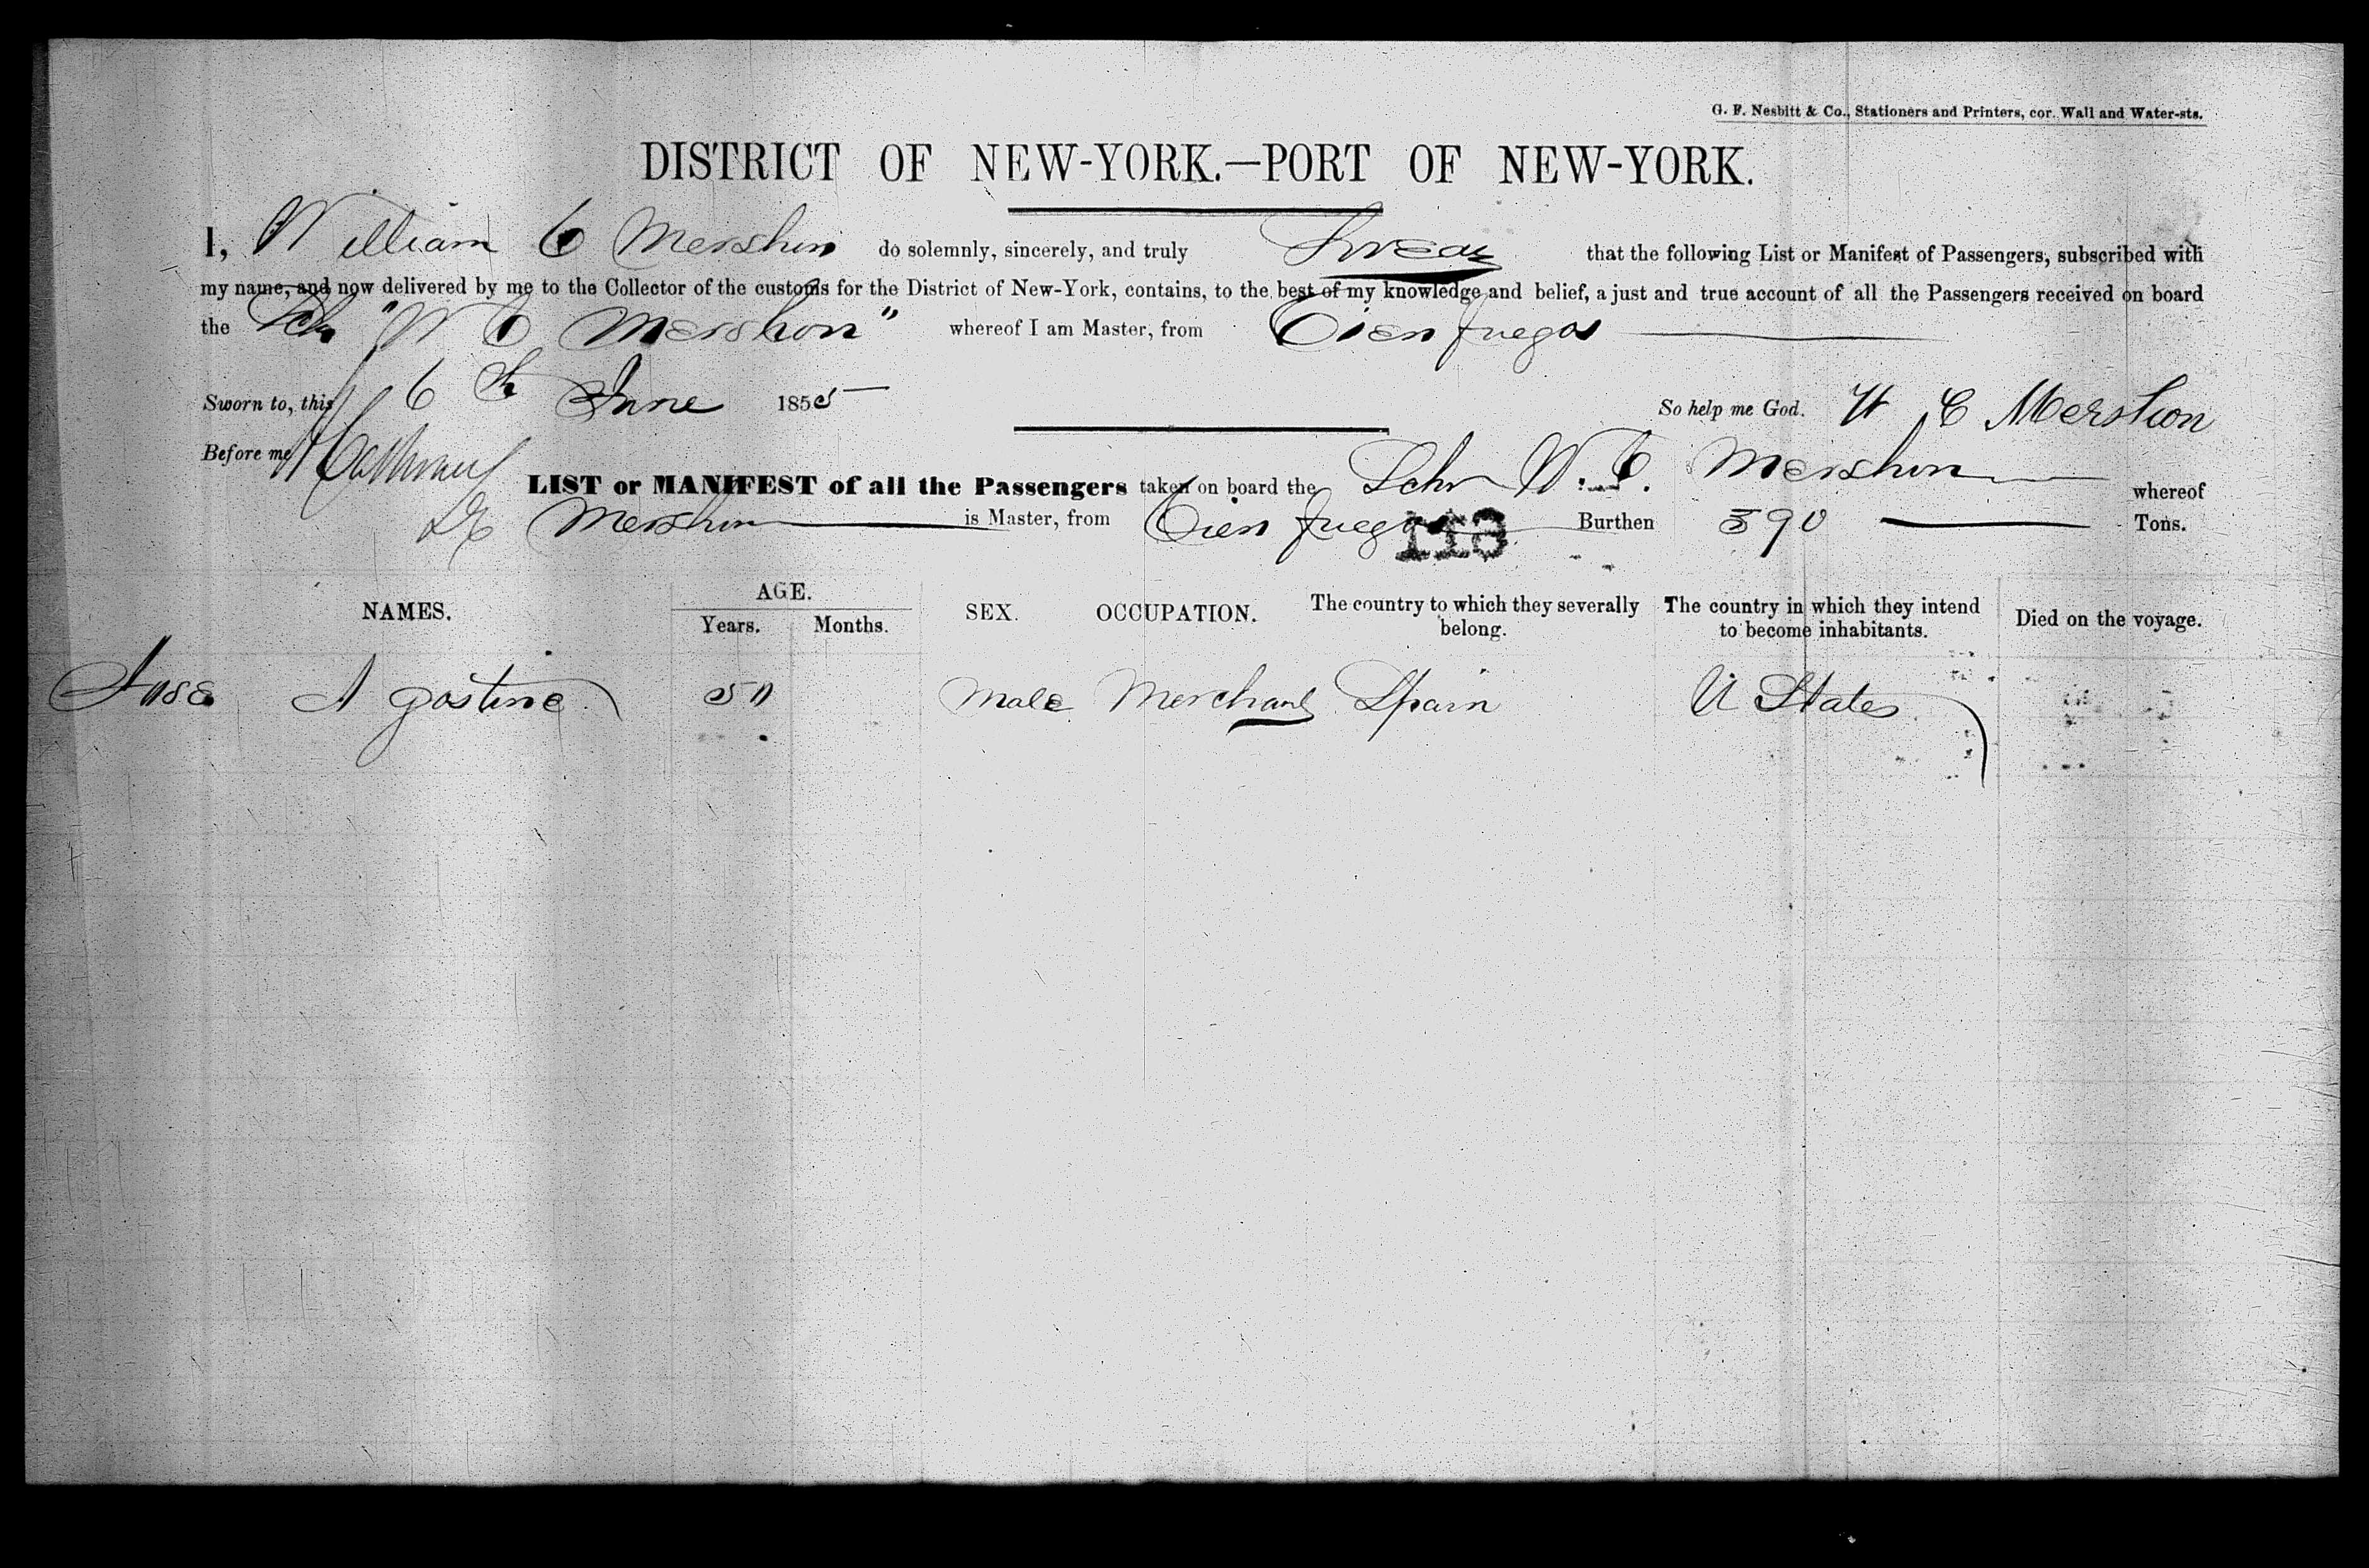 G. F. Nesbitt & Co., Stationers and Printers, cor. Wall and Water-sts.
DISTRICT OF NEW-YORK.—PORT OF NEW-YORK.
I, William C Mershon do solemnly, sincerely, and truly Swear that the following List or Manifest of Passengers, subscribed with
my name, and now delivered by me to the Collector of the customs for the District of New-York, contains, to the best of my knowledge and belief, a just and true account of all the Passengers received on board
the Sch "W C Mershon" whereof I am Master, from Cienfuegos
Sworn to, this 6th June 1855 So help me God. W C Mershon
Before me
LIST or MANIFEST of all the Passengers taken on board the Schr W. C. Mershon whereof
Mershon is Master, from Cienfuegos Burthen 390 Tons.
113
NAMES. AGE. Years. Months. SEX. OCCUPATION. The country to which they severally belong. The country in which they intend to become inhabitants. Died on the voyage.
Jose Agostine 50 male Merchant Spain U States